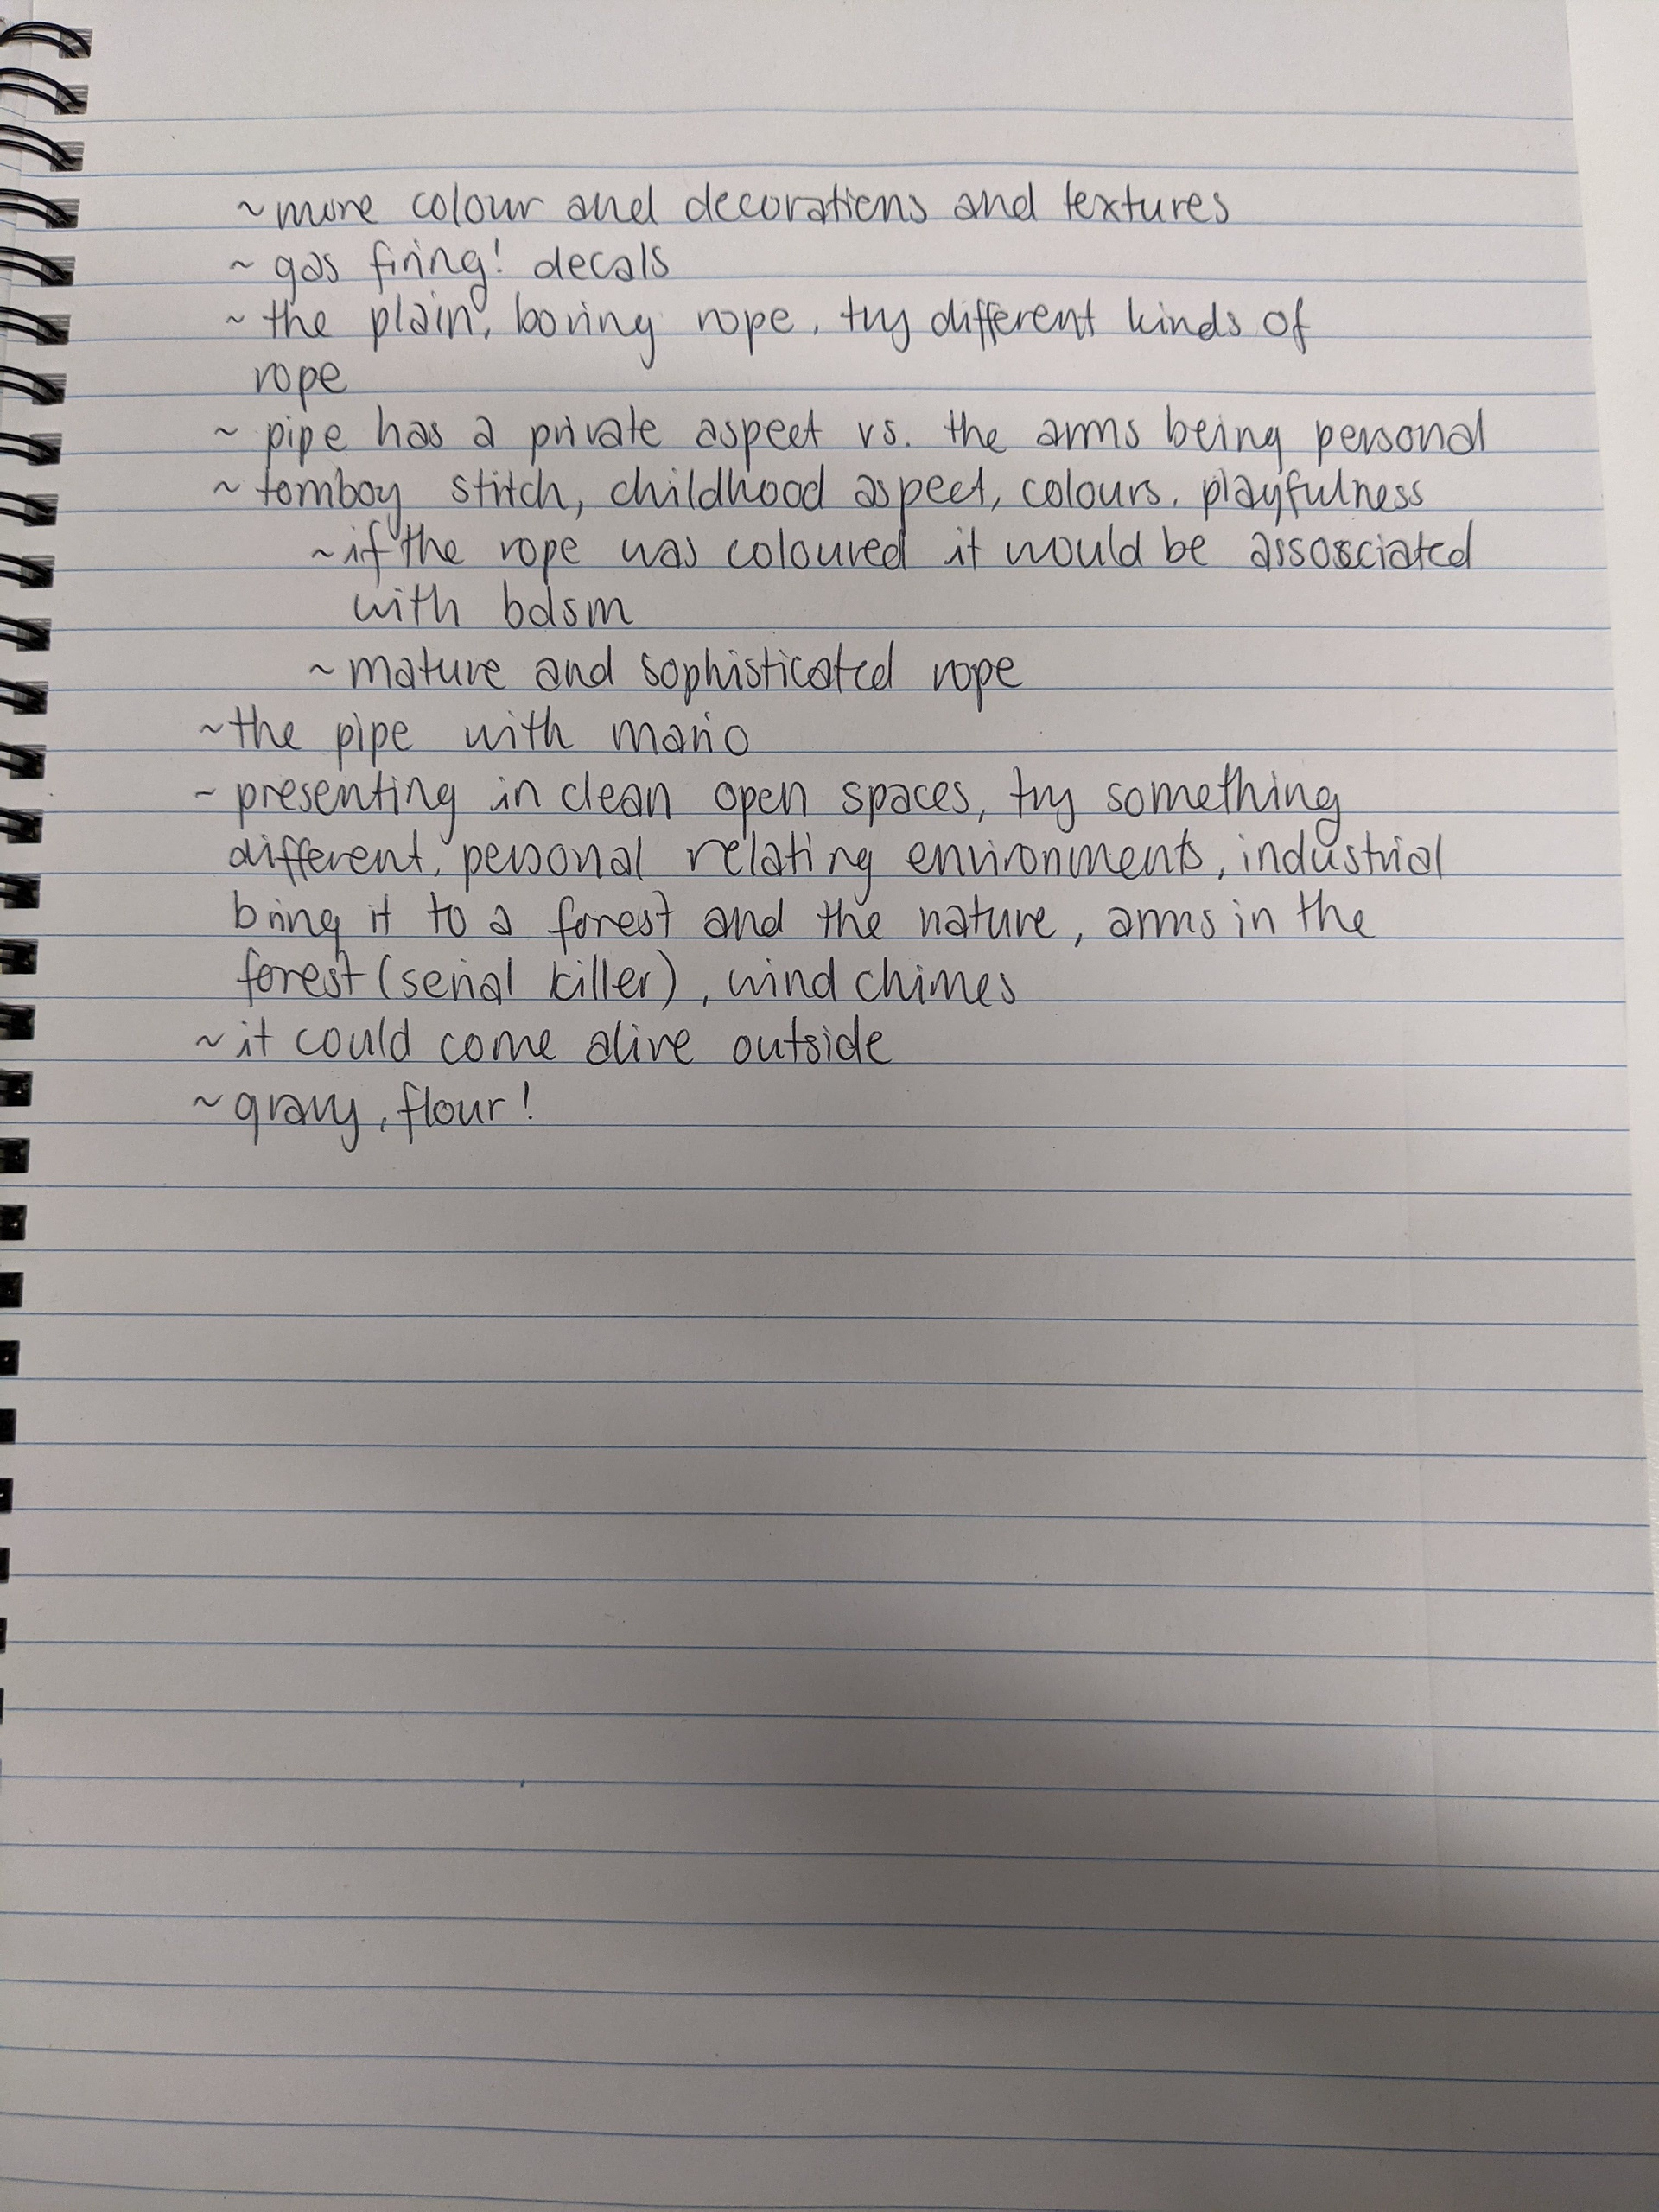 ~ more colour and decorations and textures
~ gas firing! decals
~ the plain, boring rope, try different kinds of
rope
~ pipe has a private aspect vs. the arms being personal
~ tomboy stitch, childhood aspect, colours, playfulness
~ if the rope was coloured it would be assosciated
with bdsm
~ mature and sophisticated rope
~ the pipe with mario
~ presenting in clean open spaces, try something
different, personal relating environments, industrial
bring it to a forest and the nature, arms in the
forest (serial killer), wind chimes
~ it could come alive outside
~ gravy, flour!